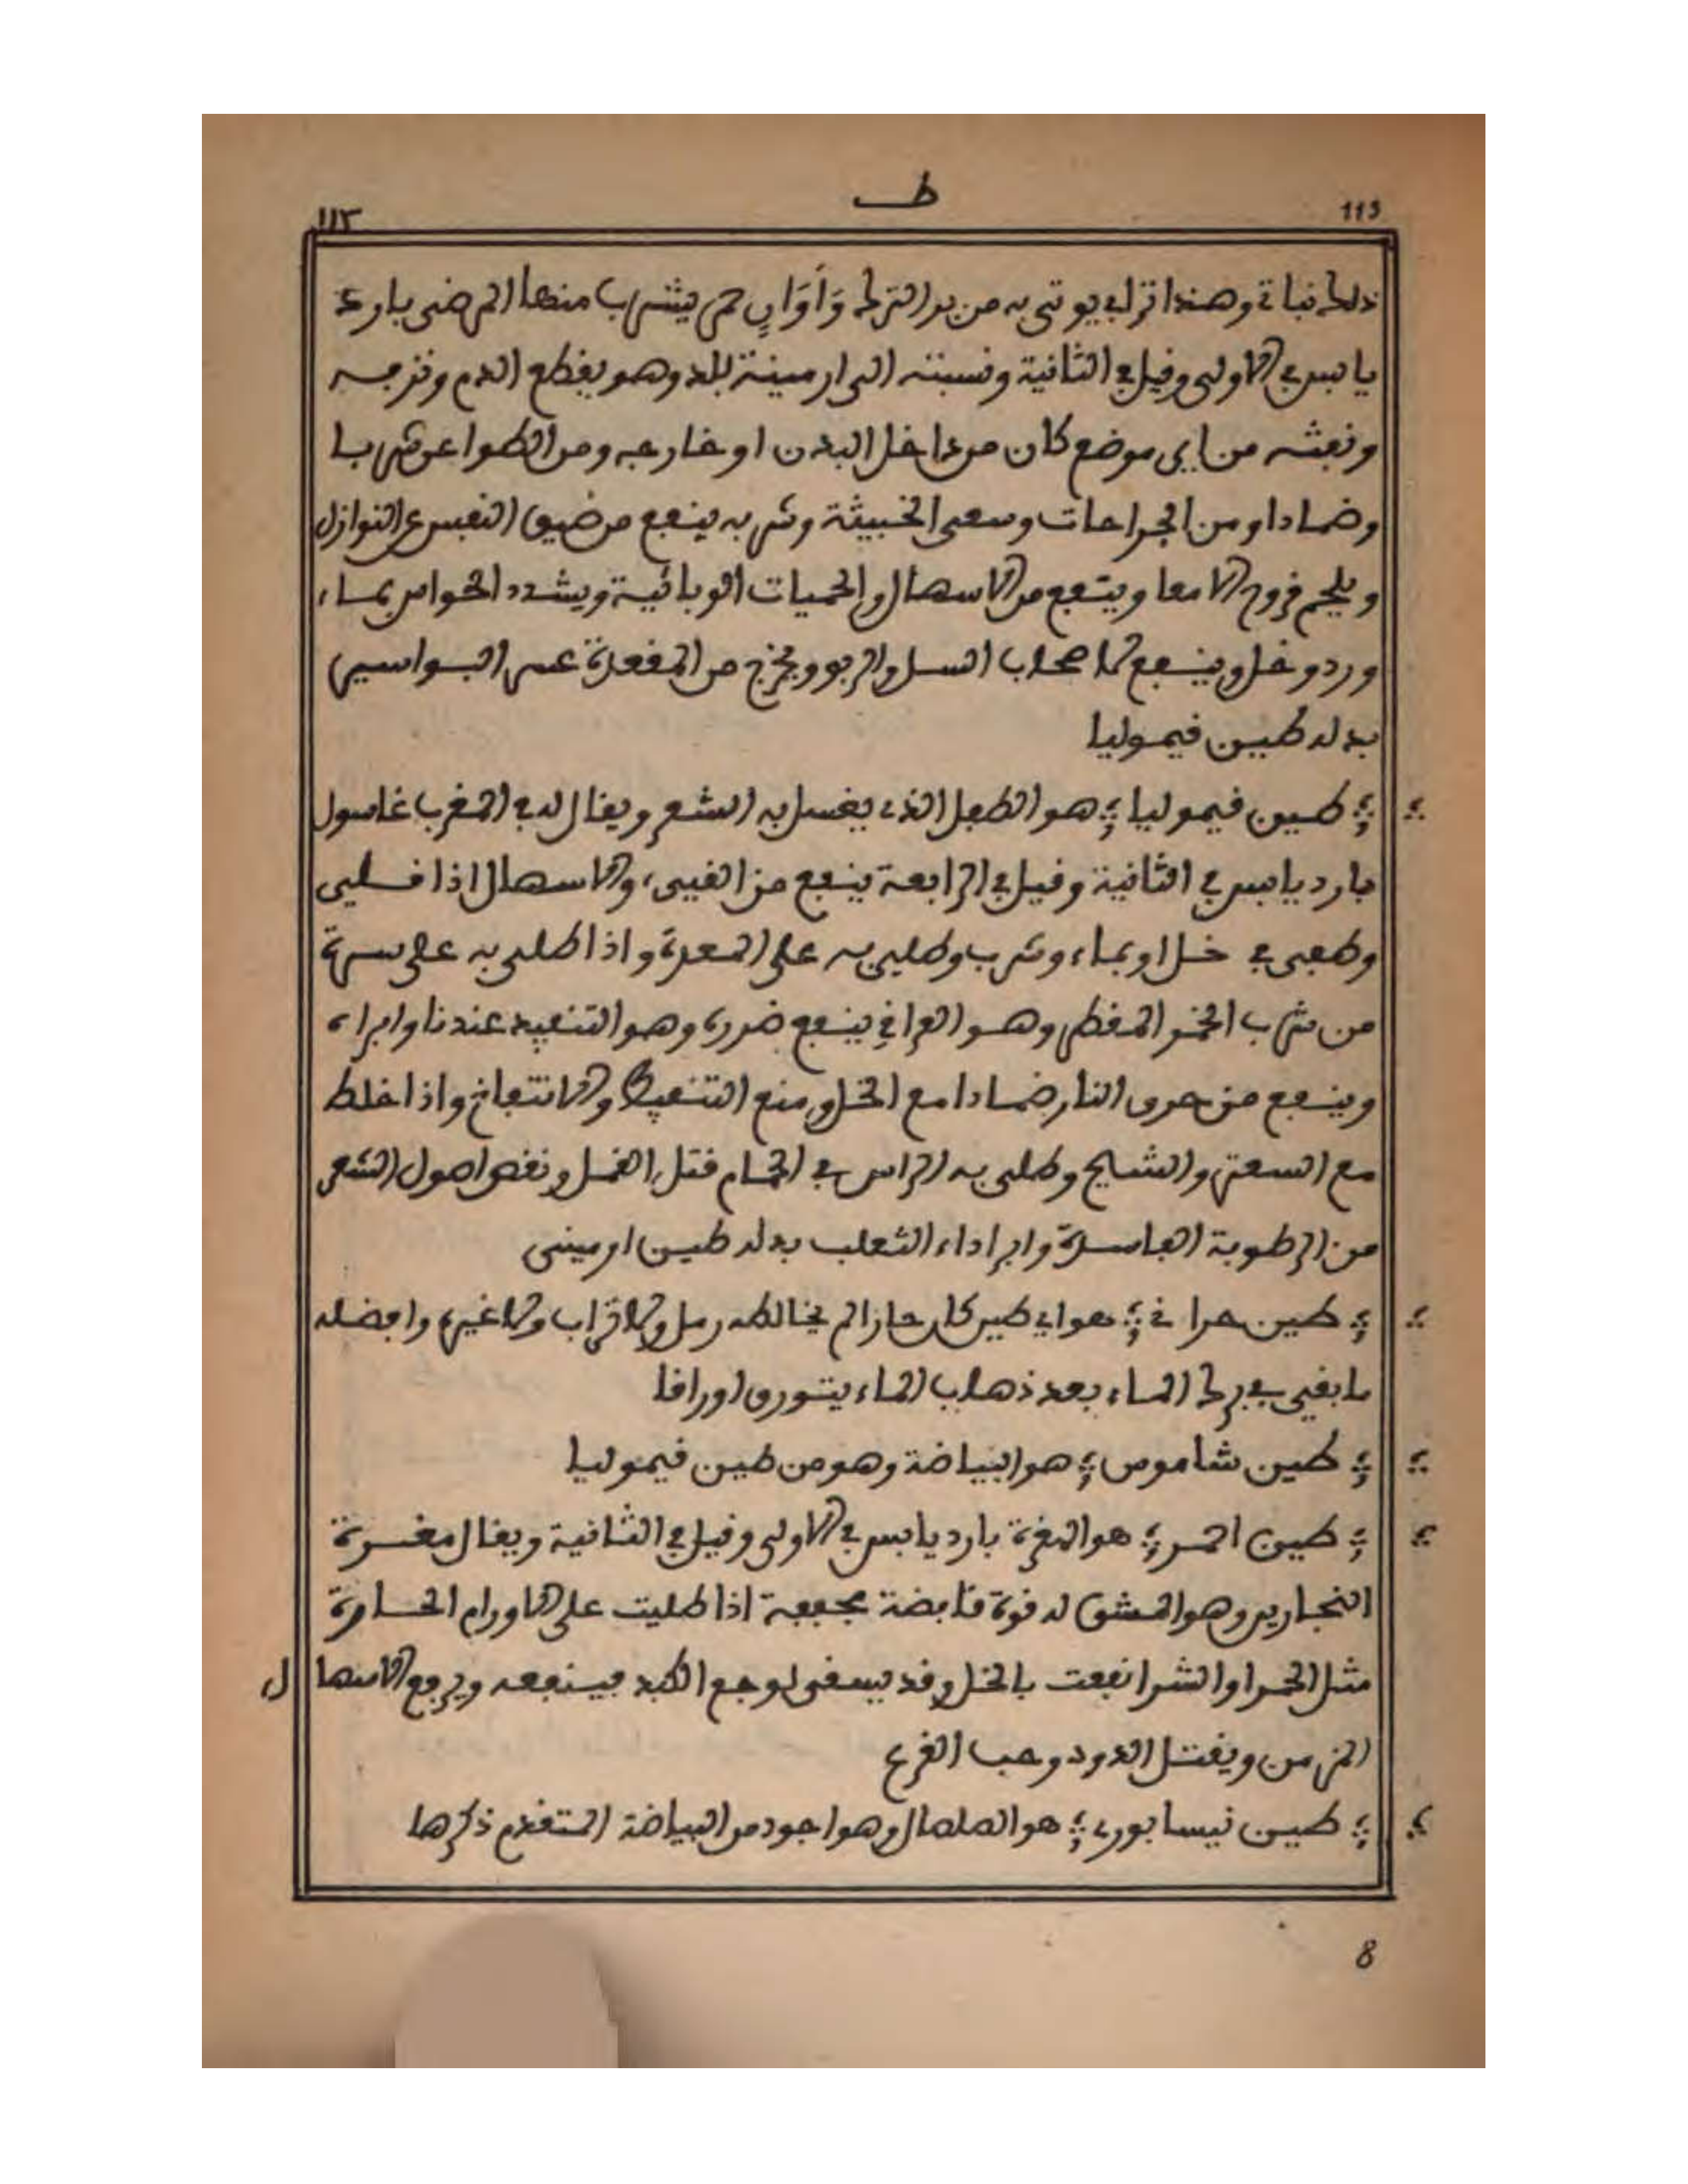 ط
113
١١٣
ذلك نباتي وهذا تراب يوتى به من بر الترك وَأَوَانٍ حمر يشرب منها المرضى بارد
يابس في الاولى وقيل في الثانية ونسبته الى ارمينة بلد وهو يقطع الدم ونزفه
ونفثه من اي موضع كان من داخل البدن او خارجه ومن الطواعن شربا
وضمادا ومن الجراحات وسعي الخبيثة وشربه ينفع من ضيق النفس عن النوازل
ويلحم قروح الامعا وينفع من الاسهال والحميات الوبائية ويشدد الحواس بماء
ورد وخل وينفع لاصحاب السل والربو ويخرج من المقعدة عسر البواسير
بدله طين قيموليا
طين قيموليا هو الطفل الذي يغسل به الشعر ويقال له في المغرب غاسول
بارد يابس في الثانية وقيل في الرابعة ينفع من القيىء والاسهال اذا قلي
وطفي في خل او بماء وشرب وطلي به على المعدة واذا طلي به على سرة
من شرب الخمر المفطر وهو العراقي ينفع ضرره وهو التنفيد عندنا وابراء
وينفع من حرق النار ضمادا مع الخل ويمنع التنفيط والانتفاخ واذا خلط
مع السعتر والشيح وطلي به الراس في الحمام قتل القمل ونقى اصول الشعر
من الرطوبة الفاسدة وابرا داء الثعلب بدله طين ارميني
طين حر اني هو اي طين كان حارا لم يخالطه رمل ولا تراب ولا غيره وافضله
ما بقي في برك الماء بعد ذهاب الماء يتورق اوراقا
طين شاموس هو البياضة وهو من طين قيموليا
طين احمر هو المغرة بارد يابس في الاولى وقيل في الثانية ويقال مغسرة
النجارين وهو المشق له قوة قابضة مجففة اذا طليت على الاورام الحارة
مثل الحمرا والشرا نفعت بالخل وقد يسقى لوجع الكبد فينفعه ويرفع الاسهال
المزمن ويقتل الدود وحب القرع
طين نيسابوري هو الصلصال وهو اجود من البياضة المتقدم ذكرها
8